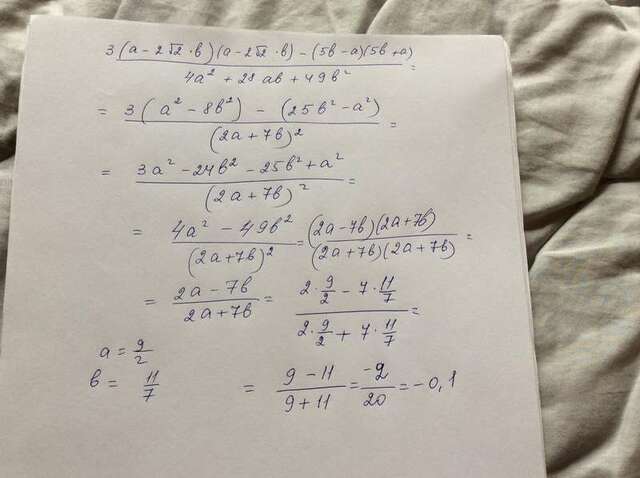 3(a-2√2·b)(a-2√2·b)-(5b-a)(5b+a) / 4a²+28ab+49b² =
= 3(a²-8b²)-(25b²-a²) / (2a+7b)² =
= 3a²-24b²-25b²+a² / (2a+7b)² =
= 4a²-49b² / (2a+7b)² = (2a-7b)(2a+7b) / (2a+7b)(2a+7b) =
= 2a-7b / 2a+7b = 2·9/2-7·11/7 / 2·9/2+7·11/7 =
a=9/2
b= 11/7
= 9-11 / 9+11 = -2/20 = -0,1